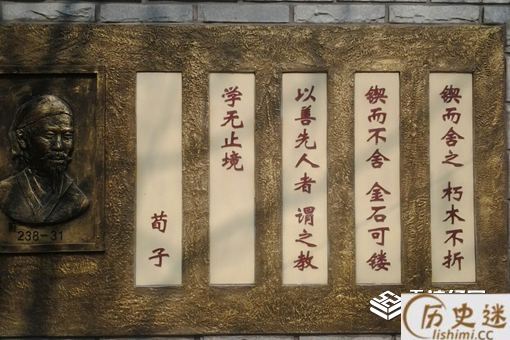 锲而舍之 朽木不折
锲而不舍 金石可镂
以善先人者 谓之教
学无止境
荀子
238-31
历史迷
lishimi.cc